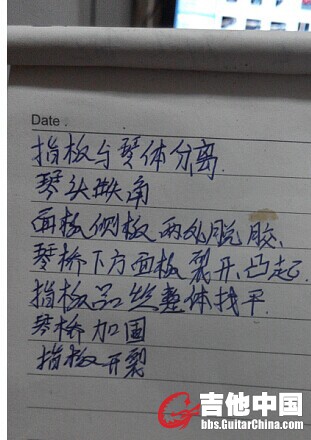 Date .
指板与琴体分离
琴头缺角
面板侧板两处脱胶、
琴桥下方面板裂开、凸起.
指板品丝整体找平.
琴桥加固
指板开裂
吉他中国
bbs.GuitarChina.com